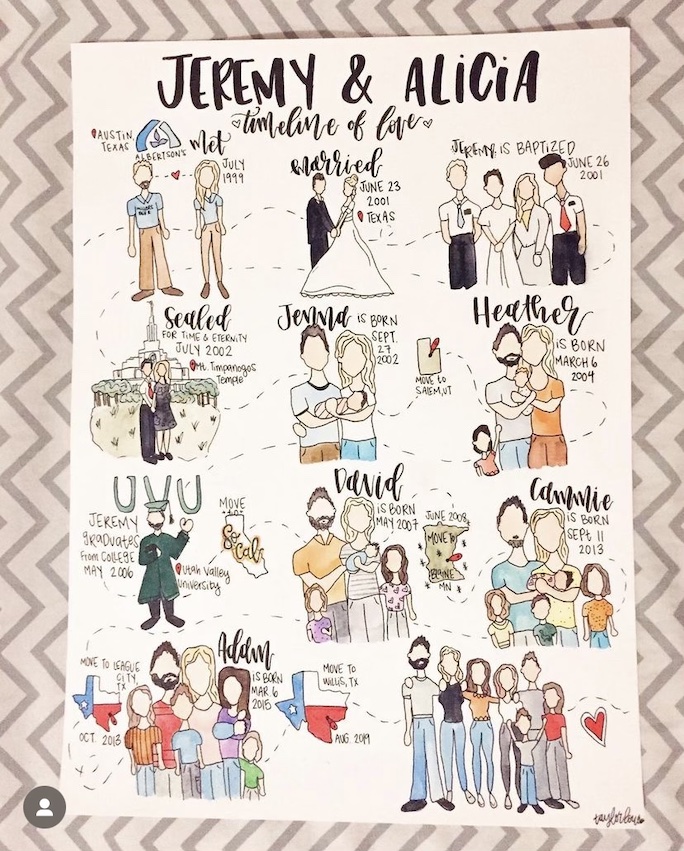 JEREMY & ALICIA
timeline of love
AUSTIN,
TEXAS
ALBERTSON'S
met
JULY
1999
married
JUNE 23
2001
TEXAS
JEREMY IS BAPTIZED
JUNE 26
2001
Sealed
FOR TIME & ETERNITY
JULY 2002
Mt. Timpanogos
Temple
Jenna IS BORN
SEPT.
27
2002
MOVE TO
SALEM, UT
Heather
IS BORN
MARCH 6
2004
UVU
JEREMY
graduates
from COLLEGE
MAY 2006
Utah Valley
University
MOVE
TO
So
Cal
David
IS BORN
MAY 2007
JUNE 2008
MOVE TO
BLAINE
MN
Cammie
IS BORN
SEPT 11
2013
MOVE TO LEAGUE
CITY,
TX
OCT. 2013
Adam
IS BORN
MAR. 6
2015
MOVE TO
WILLIS, TX
AUG. 2019